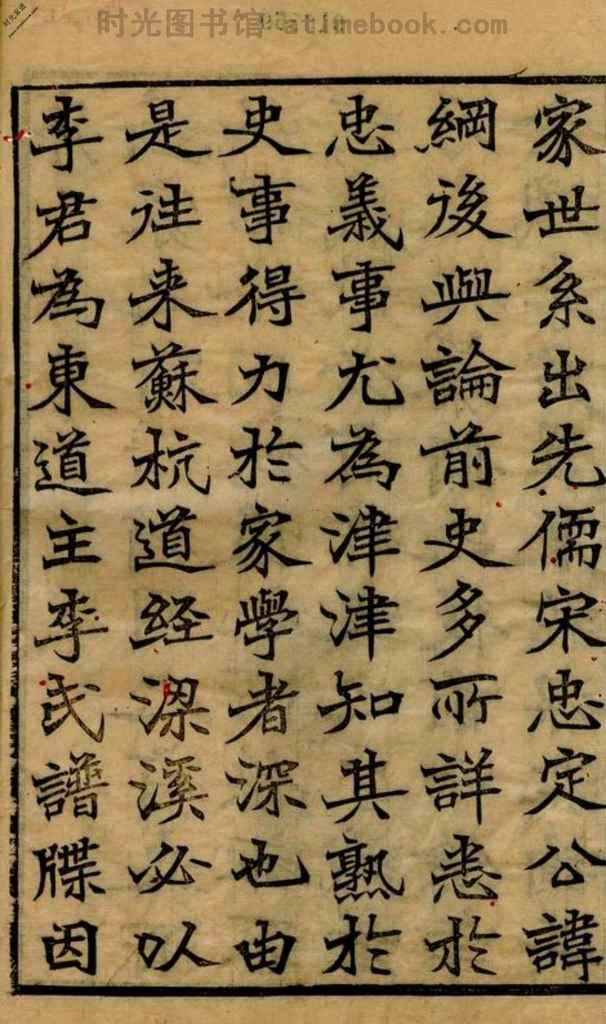 时光图书馆 atimebook.com
家世系出先儒宋忠定公諱
綱後與論前史多所詳悉於
忠義事尤為津津知其熟於
史事得力於家學者深也由
是往来蘇杭道経梁溪必以
李君為東道主李氏譜牒因